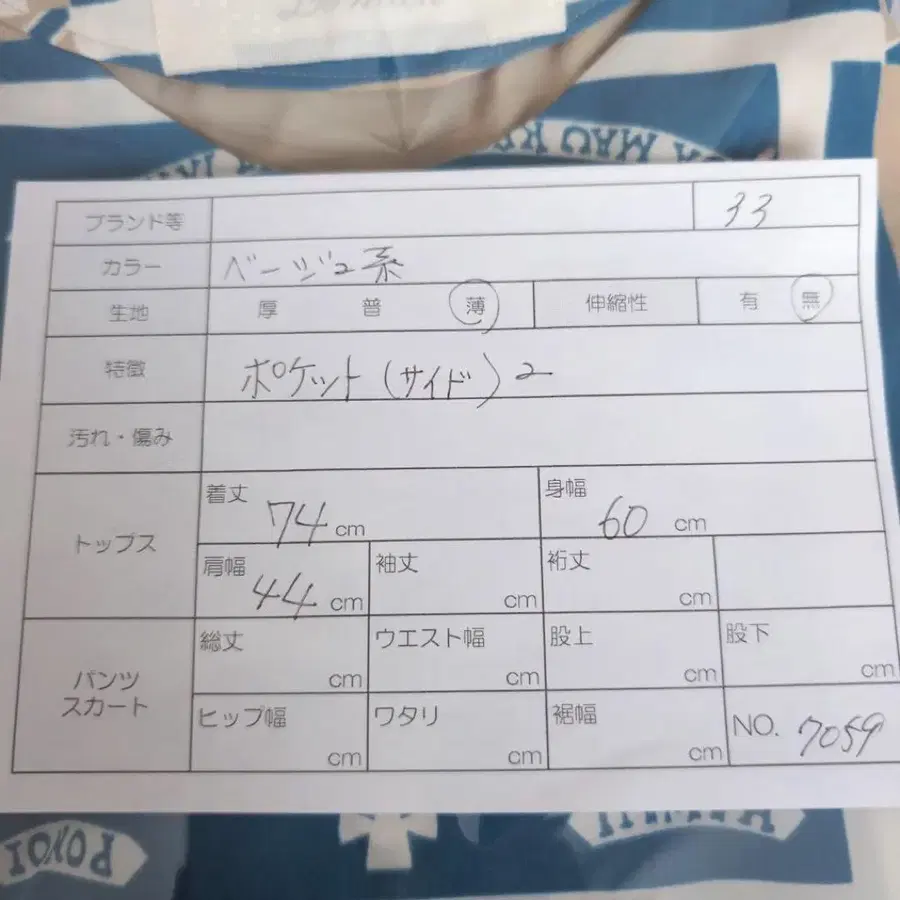 ブランド等 33
カラー ベージュ系
生地 厚 普 薄 伸縮性 有 無
特徴 ポケット(サイド)2
汚れ・傷み
トップス
着丈 74 cm 身幅 60 cm
肩幅 44 cm 袖丈 cm 裄丈 cm
パンツ
スカート
総丈 cm ウエスト幅 cm 股上 cm 股下 cm
ヒップ幅 cm ワタリ cm 裾幅 cm NO. 7059